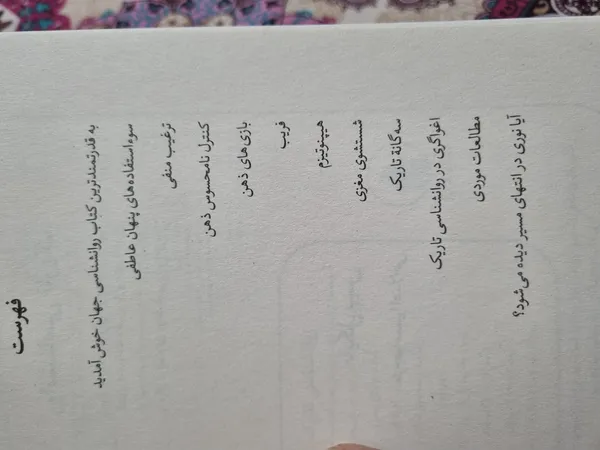 فهرست
به قدرتمندترین کتاب روانشناسی جهان خوش آمدید
سوءاستفاده‌های پنهان عاطفی
ترغیب منفی
کنترل نامحسوس ذهن
بازی‌های ذهن
فریب
هیپنوتیزم
شستشوی مغزی
سه‌گانهٔ تاریک
اغواگری در روانشناسی تاریک
مطالعات موردی
آیا نوری در انتهای مسیر دیده می‌شود؟